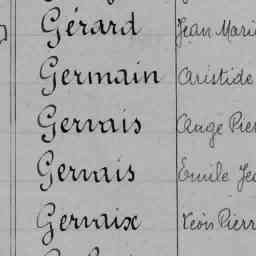 Gérard Jean Mari
Germain Aristide
Gervais Ange Pier
Gervais Emile Je
Gervaix Pierr